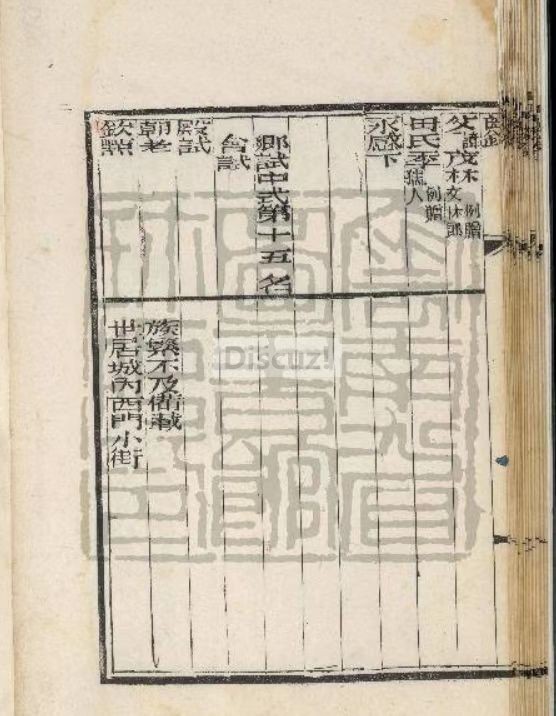 父諱茂林例贈文林郎
母氏李例贈孺人
永感下
鄉試中式第十五名
會試
殿試
朝考
欽點
族繁不及備載
世居城內西門小街
Discuz!